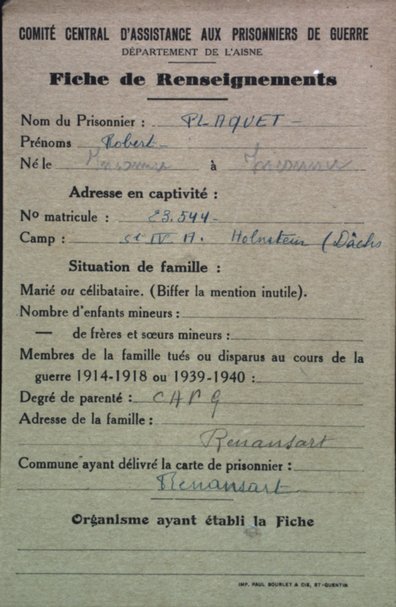 COMITÉ CENTRAL D'ASSISTANCE AUX PRISONNIERS DE GUERRE
DÉPARTEMENT DE L'AISNE
Fiche de Renseignements
Nom du Prisonnier : PLAQUET -
Prénoms Robert -
Né le à
Adresse en captivité :
No matricule : 23.544 -
Camp : st IV. A. Holnstein (Dâchs
Situation de famille :
Marié ou célibataire. (Biffer la mention inutile).
Nombre d'enfants mineurs :
— de frères et sœurs mineurs :
Membres de la famille tués ou disparus au cours de la
guerre 1914-1918 ou 1939-1940 :
Degré de parenté :
Adresse de la famille :
Renansart
Commune ayant délivré la carte de prisonnier :
Renansart
Organisme ayant établi la Fiche
IMP. PAUL BOURLET & CIE, ST-QUENTIN